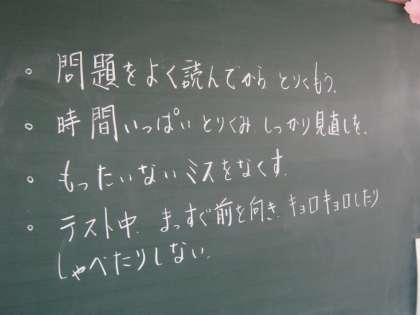 。問題をよく読んでから とりくもう。
。時間いっぱい とりくみ しっかり見直しを。
。もったいないミスをなくす。
。テスト中、まっすぐ前を向き、キョロキョロしたり
しゃべたりしない。